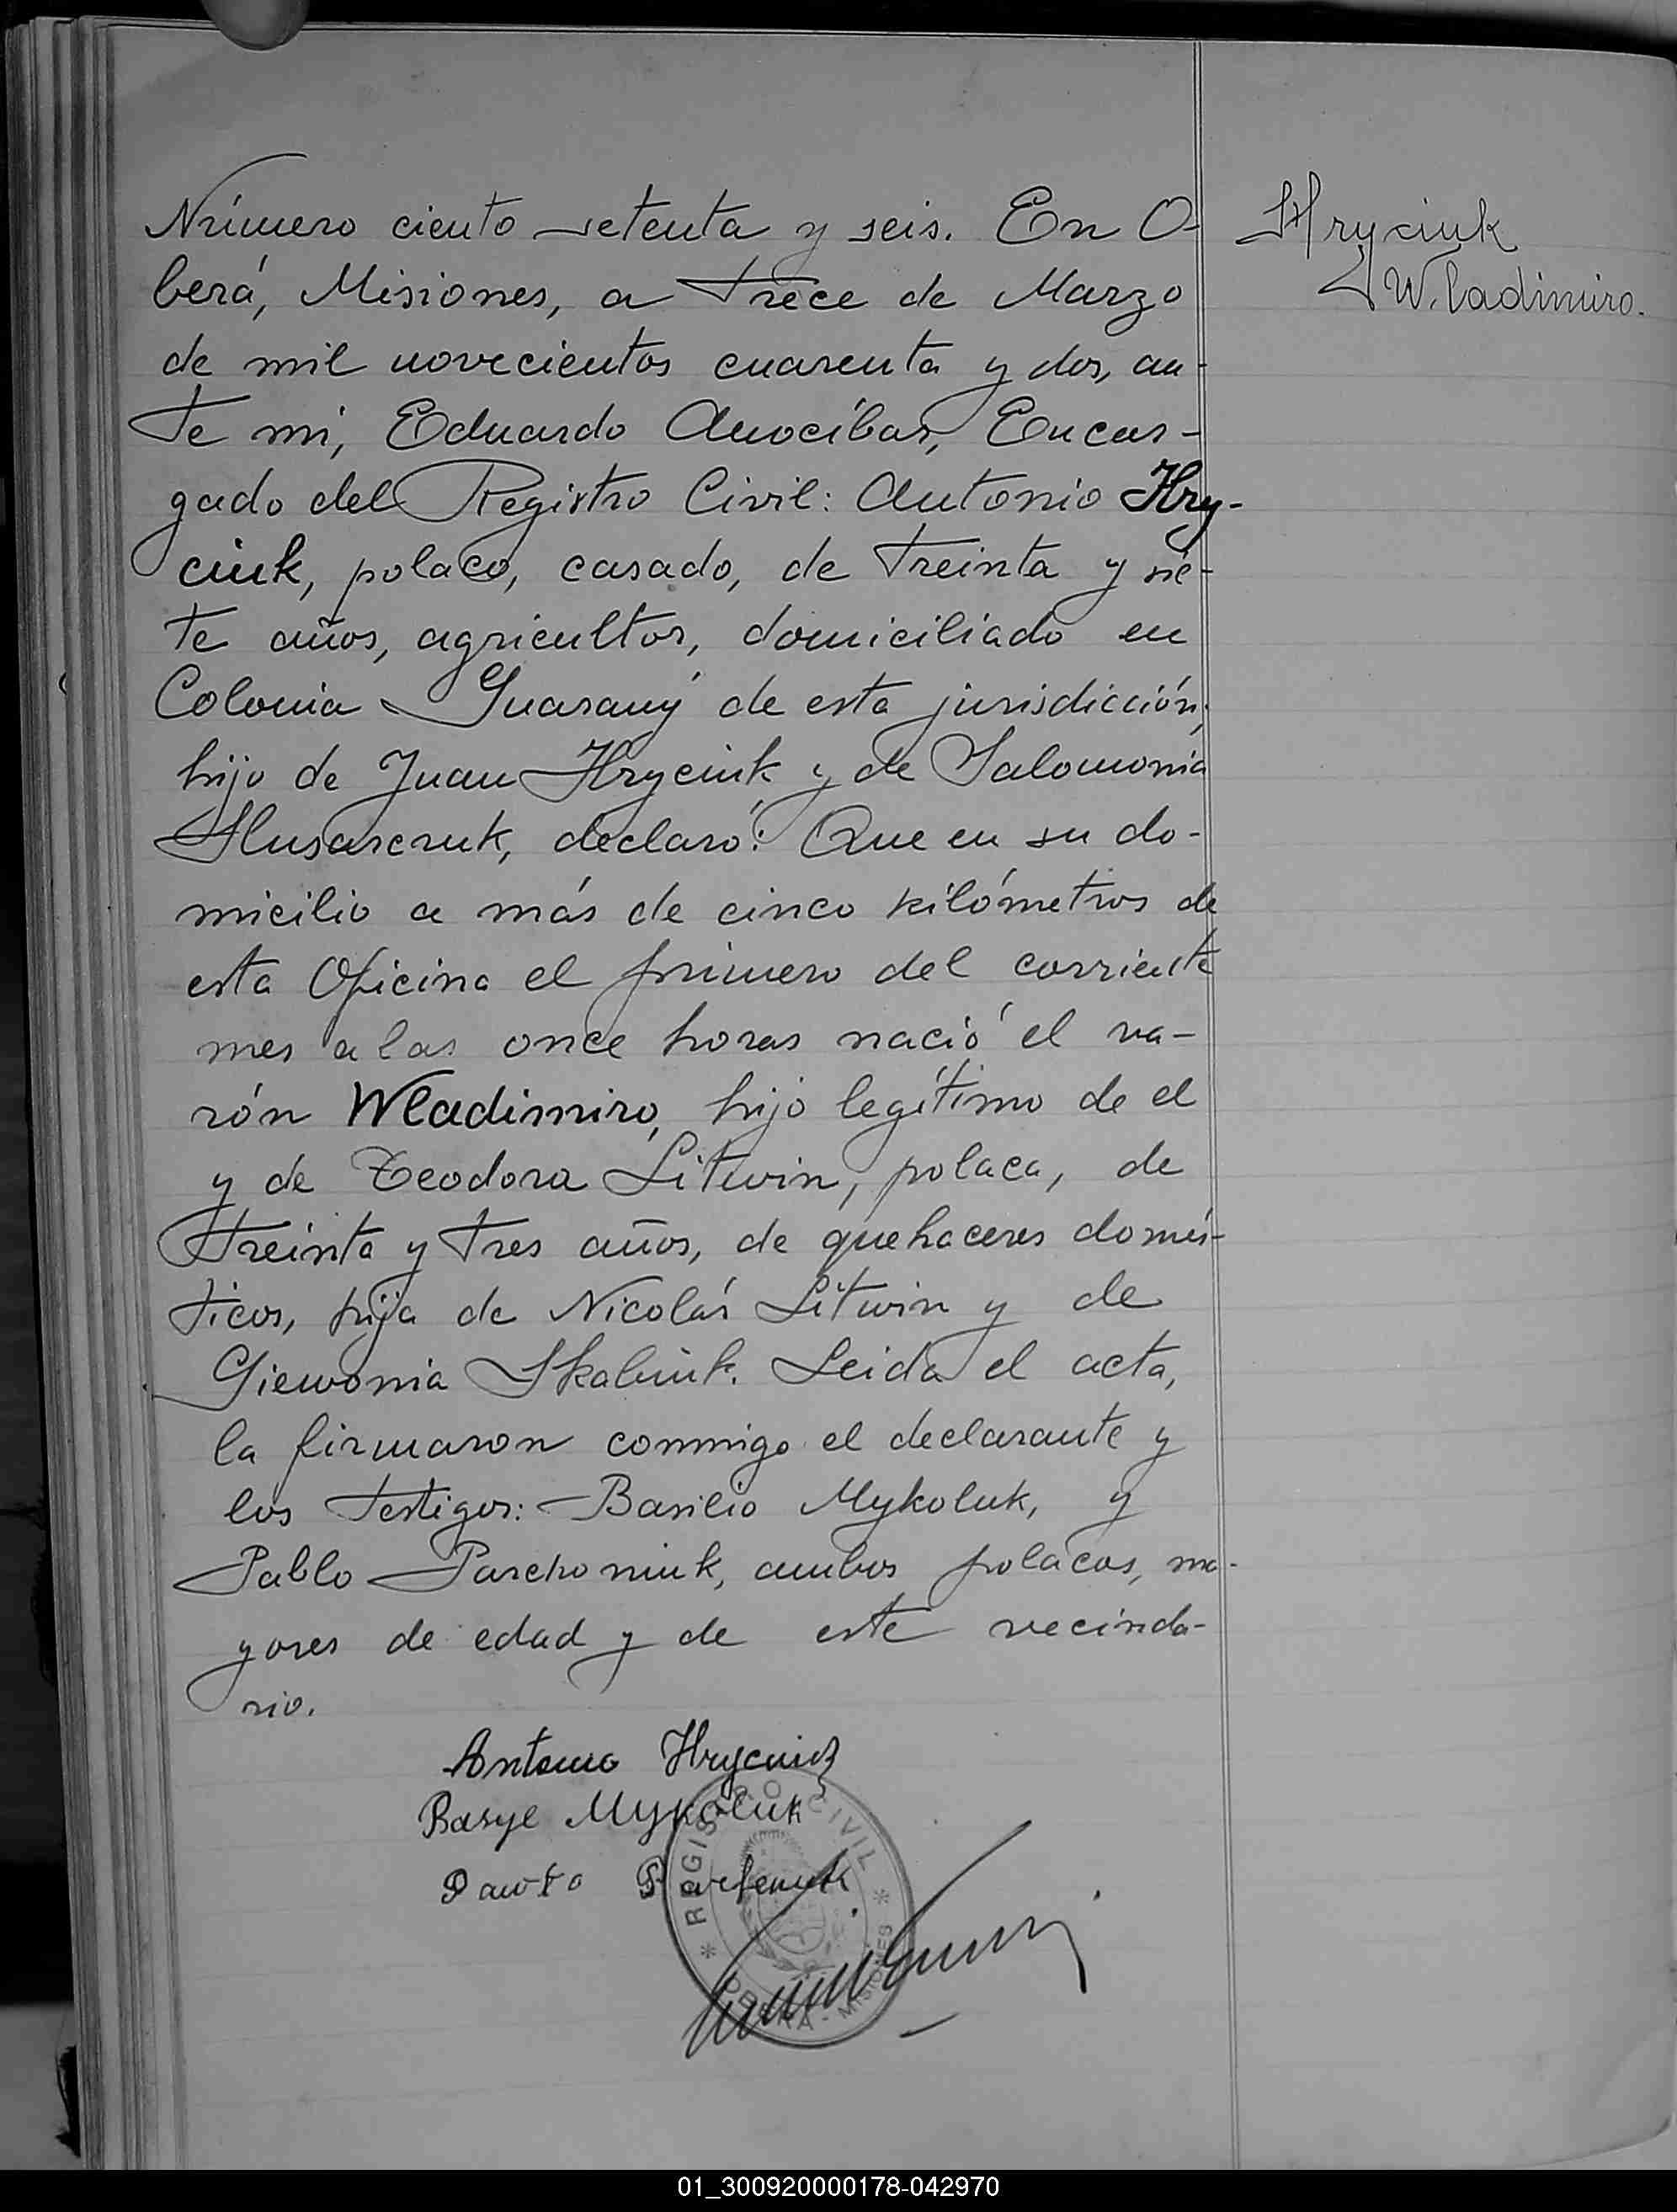 Número ciento setenta y seis. En O-
berá, Misiones, a trece de Marzo
de mil novecientos cuarenta y dos, an-
te mi, Eduardo Anocíbar, Encar-
gado del Registro Civil: Antonio Hry-
ciuk, polaco, casado, de treinta y sie-
te años, agricultor, domiciliado en
Colonia Guarany de esta jurisdicción,
hijo de Juan Hryciuk y de Salomonia
Husarczuk, declaró: Que en su do-
micilio a más de cinco kilómetros de
esta Oficina el primero del corriente
mes a las once horas nació el va-
rón Wladimiro, hijo legítimo de el
y de Teodora Litwin, polaca, de
treinta y tres años, de quehaceres domés-
ticos, hija de Nicolás Litwin y de
Giewonia Skabiuk. Leida el acta,
la firmaron conmigo el declarante y
los testigos: Basilio Mykoluk, y
Pablo Parchomiuk, ambos polacos, ma-
yores de edad y de este vecinda-
rio.
Hryciuk
Wladimiro.
Antonio Hryciuk
Basyl Mykoluk
REGISTRO CIVIL
OBERA - MISIONES
01_300920000178-042970